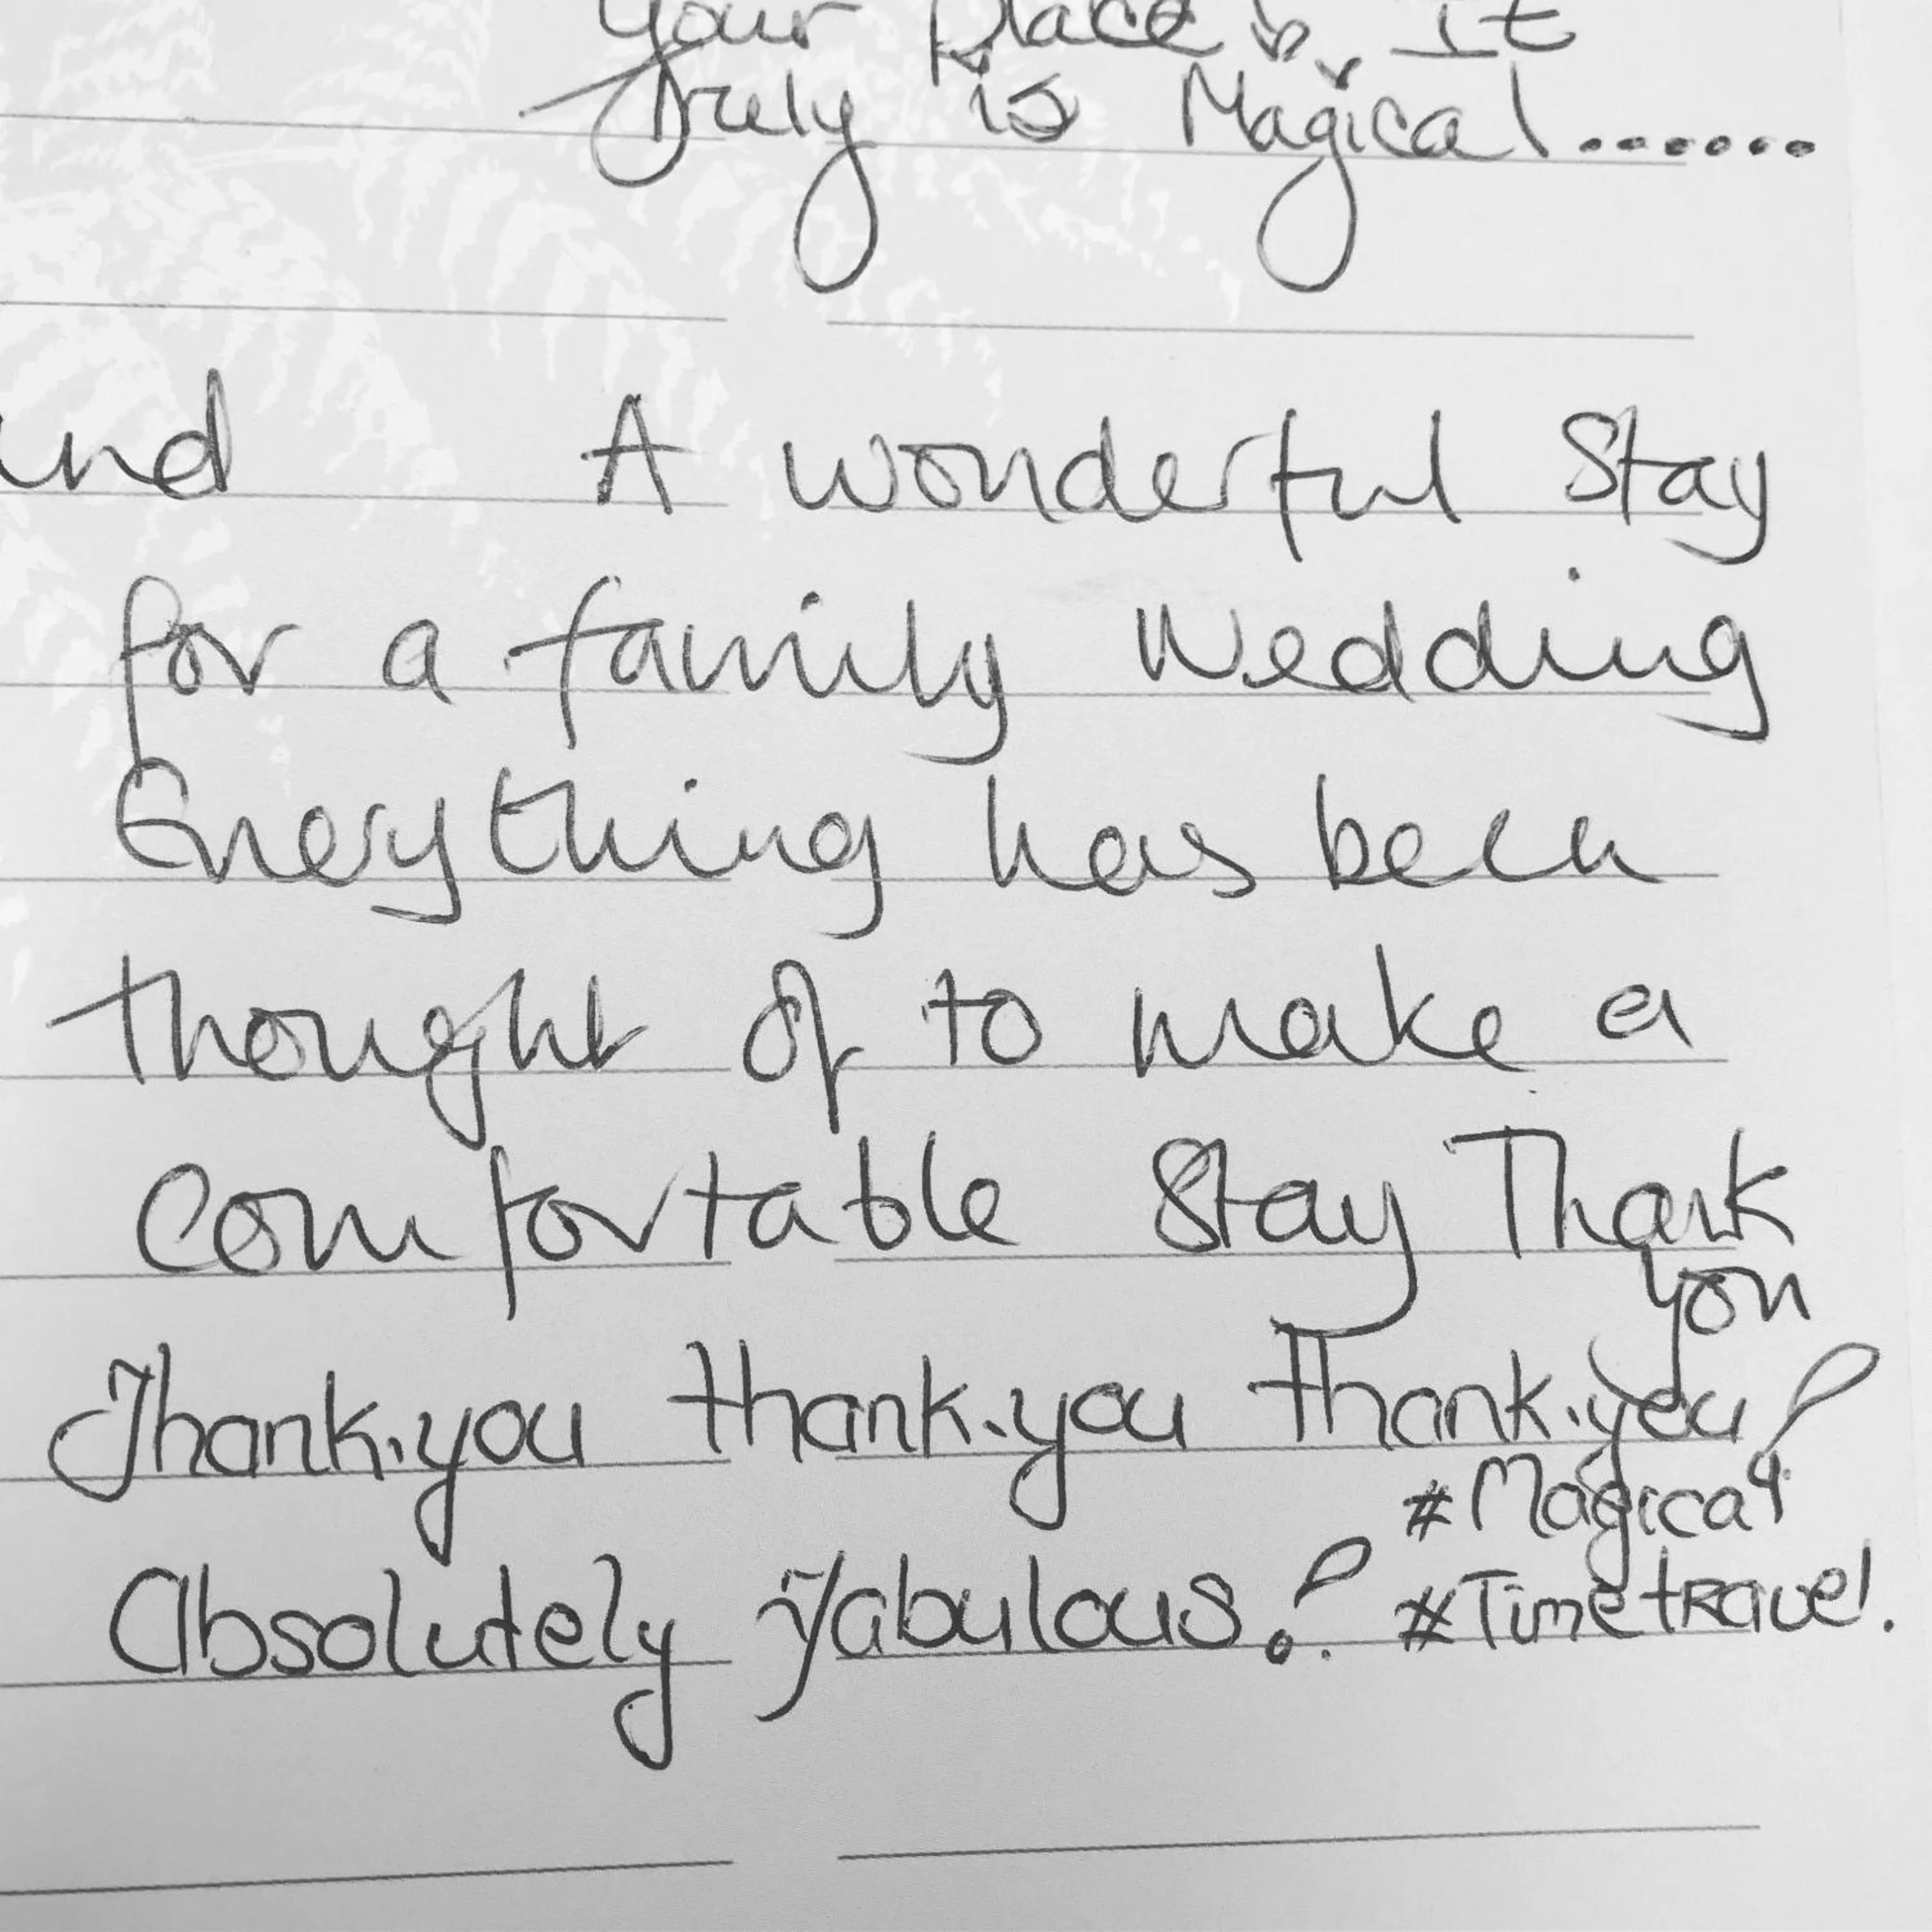 your place. It
Truly is Magical.......
und A wonderful Stay
for a family Wedding
Everything has been
thought of to make a
Comfortable Stay Thank
you
Thank.you thank.you thank.you!
#Magical
Absolutely Fabulous! #Timetravel.